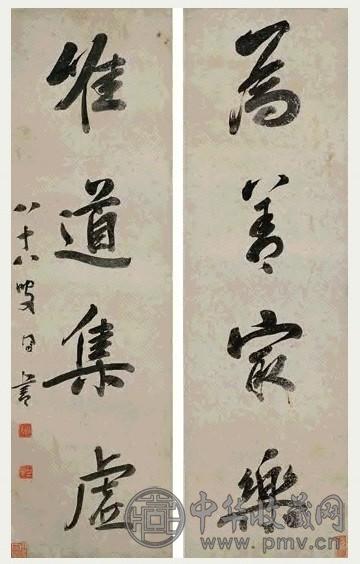 為善最樂
唯道集虛
八十八叟同書
中华收藏网
www.pmv.cn